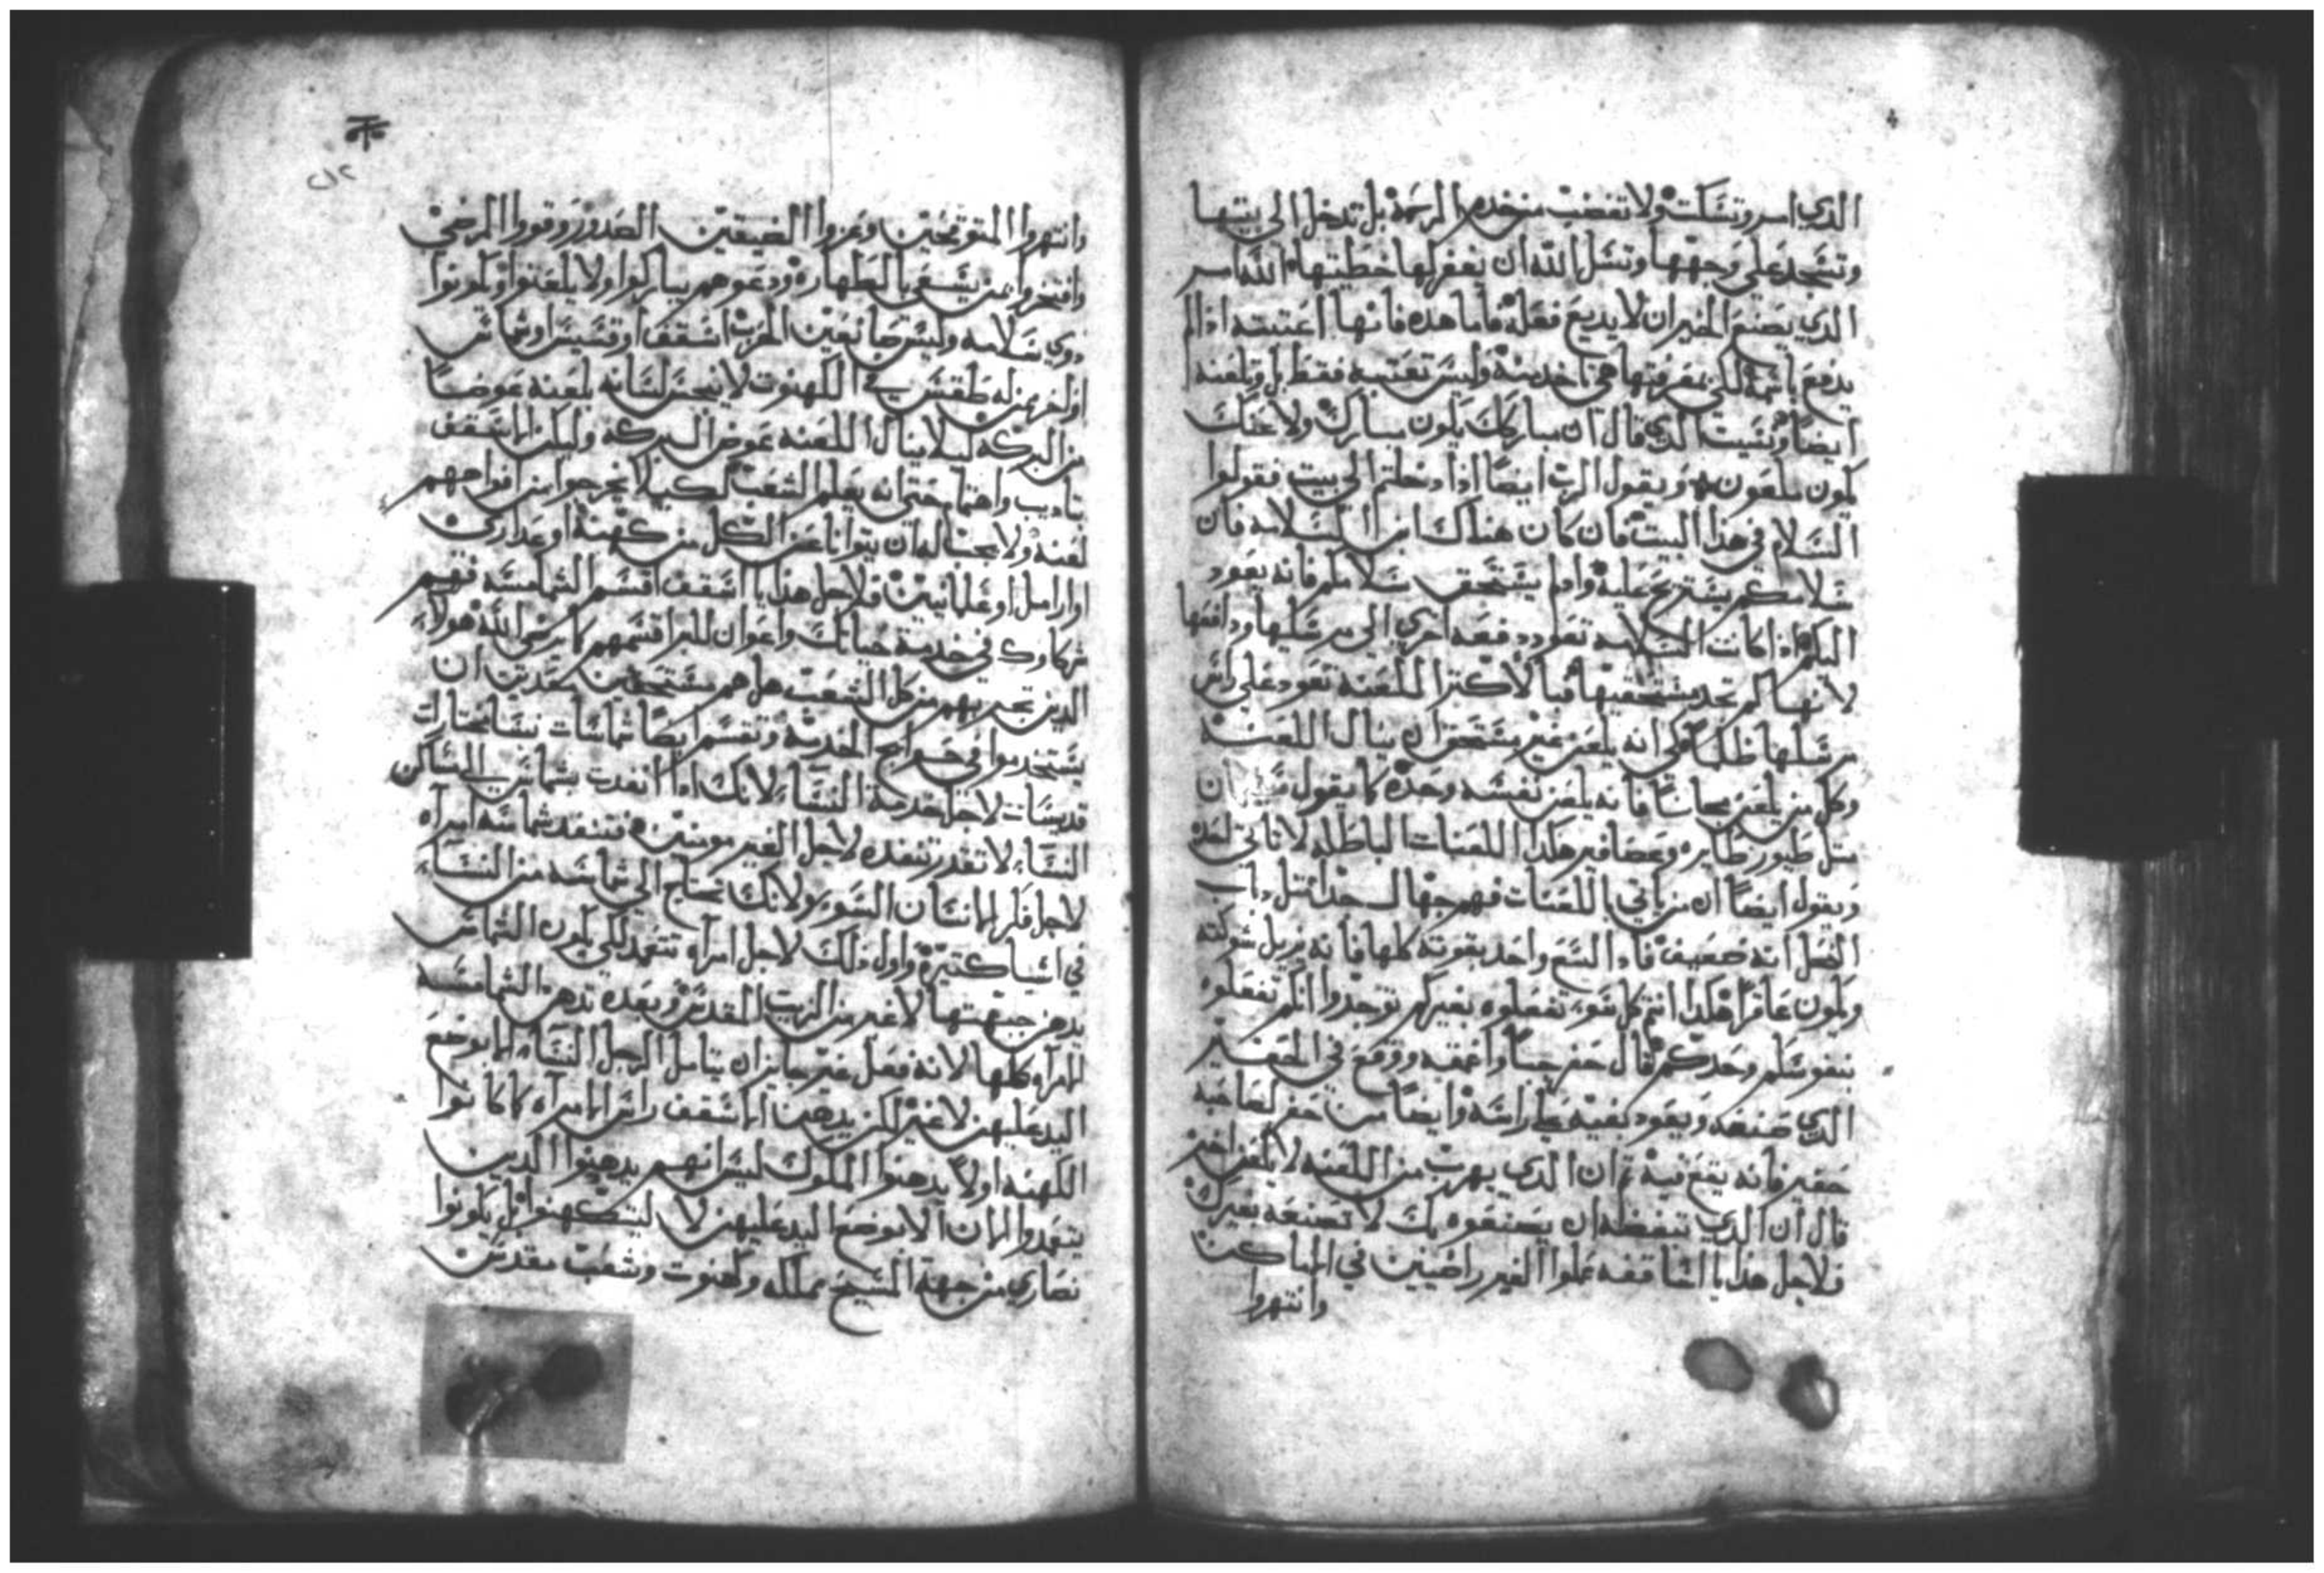 الذي اسر وتسكت ولا تغضب من خدم الرحمة بل تدخل الى بيتها
وتسجد على وجهها وتسل الله ان يغفر لها خطيتها الله امر
الذي يصنع الخير ان لا يذيع فعله فاما هذه فانها اعتبته اذ لم
يدفع باسمه لكي بمعرفتها هي ناخذ منه وليس تعتبه فقط بل وتلعنه
ايضا ونسيت الذي قال ان مباركك يكون مبارك ولاعنك
يكون ملعون ويقول الرب ايضا اذا دخلتم الى بيت فقولوا
السلام في هذا البيت فان كان هناك ابن السلامه فان
سلامكم يستريح عليه واذا لم يستحق سلامكم فانه يعود
اليكم اذا كانت السلامه تعود دفعه اخرى الى مرسليها ودافعها
لانها لم تجد مستحقيها فبالاكثر اللعنه تعود على راس
مرسلها ظلما لانه يلعن غير مستحق ان ينال اللعنه
وكل من يلعن مجانا فانه يلعن نفسه وحده كما يقول سليمان
مثل طيور طايره وعصافير هكذا اللعنات الباطله لا تاتي لاحد
ويقول ايضا ان من ياتي باللعنات فهو جهال جدا مثل داب
النحل انه ضعيف فاذا لسع واحد بقوته كلها فانه يزيل شوكته
ويكون عاقرا هكذا انتم كل سوء تفعلوه بغيركم توجدوا انكم تفعلوه
بنفوسكم وحدكم قال حفر جبا واعمقه ووقع في الحفير
الذي صنعه ويعود بغيه على راسه وايضا من حفر لصاحبه
حفير فانه يقع فيه ثم ان الذي يهرب من اللعنه لا يلعن اخر
قال ان الذي تبغضه ان يصنعوه بك لا تصنعه بغيرك
فلاجل هذا يا اساقفه علموا الغير راضيين في الماكن
وانتهروا
وانتهروا المتوقحين وعزوا الضيقين الصدور وقووا المرضى
وافتخروا بمن يسعى بالطهاره ودعوهم يباركوا ولا يلعنوا ويكونوا
ذوي سلامه وليس صانعين الحرب اسقف او قسيس او شماس
او اخر من له طقس في الكهنوت لا ينجس لسانه بلعنه عوضا
من البركه ليلا ينال اللعنه عوض البركه وليكن للاسقف
تاديب واهتمام حتى انه يعلم الشعب لكيلا يخرجوا من افواههم
لعنه ولا يجب له ان يتوانا عن الكل من كهنه او عذارى
او ارامل او علمانيين فلاجل هذا يا اسقف اقسم الشمامسه فهم
شركاوك في خدمة حياتك واعوان للبر اقسمهم كما يرضي الله هولاء
الذين تختبرهم من كل الشعب هل هم مستحقين مقدين ان
يستخدموا في حوايج الخدمه وتقسم ايضا شماسات نسا مختارات
قديسات لاجل خدمة النساء لانك اذا انفدت شماس الى مساكن
النساء لا تقدر تنفده لاجل الغير مومنين فتنفد شماسه امراه
لاجل فكر الانسان السوء ولانك تحتاج الى شماسه من النساء
في اشيا كثيره واول ذلك لاجل امراه تتعمد لكي يكون الشماس
يدهن جبهتها لا غير من الزيت المقدس وبعده تدهن الشماسه
المراه كلها لانه فعل غير جايز ان يتامل الرجل النساء الا بوضع
اليد عليهن لا غير لكن يدهن الاسقف راس المراه كما كانوا
الكهنه اولا يدهنوا الملوك ليس انهم يدهنوا الذين
يتعمدوا الان الا بوضع اليد عليهن لا ليتكهنوا بل يكونوا
نصارى من جهة المسيح مملكه وكهنوت وشعب مقدس